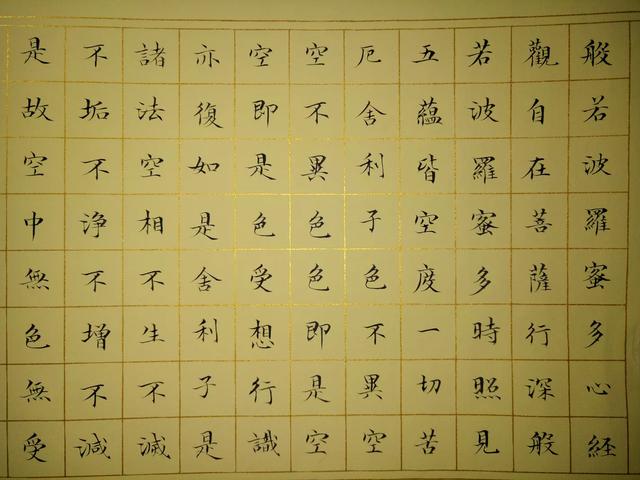 般若波羅蜜多心經
觀自在菩薩行深般
若波羅蜜多時照見
五蘊皆空度一切苦
厄舍利子色不異空
空不異色色即是空
空即是色受想行識
亦復如是舍利子是
諸法空相不生不滅
不垢不淨不增不減
是故空中無色無受